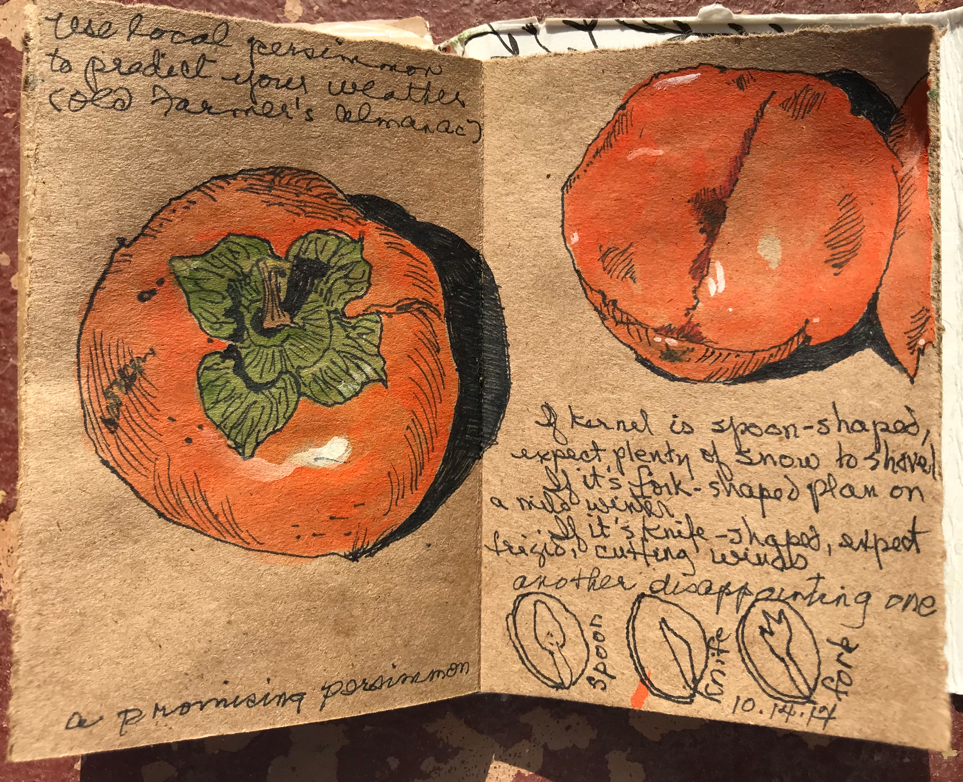 Use local persimmon
to predict your weather
(Old Farmer's Almanac)
a promising persimmon
If kernel is spoon-shaped,
expect plenty of snow to shovel.
If it's fork-shaped plan on
a mild winter.
If it's knife-shaped, expect
frigid, cutting winds
another disappointing one
spoon
knife
fork
10.14.17